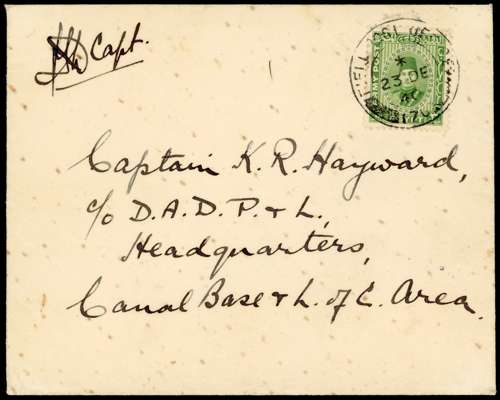 Capt.
FIELD POST OFFICE
*
23 DE
40
ARMY POST
Captain K. R. Hayward,
c/o D.A.D.P. & L.,
Headquarters,
Canal Base & L. of C. Area.